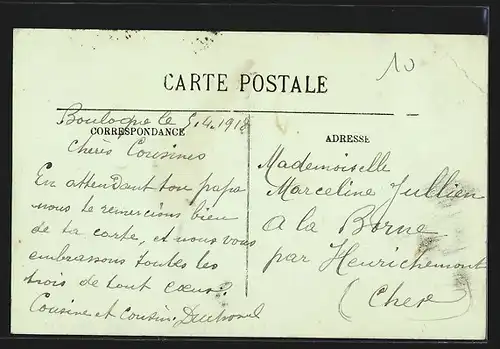 10
CARTE POSTALE
Boulogne le 5.4.1918
CORRESPONDANCE
ADRESSE
Chères Cousines
En attendant ton papa
nous te remercions bien
de ta carte, et nous vous
embrassons toutes les
trois de tout cœur
Cousine et Cousin.
Mademoiselle
Marceline Jullien
a la Borne
par Henrichemont
(Cher)